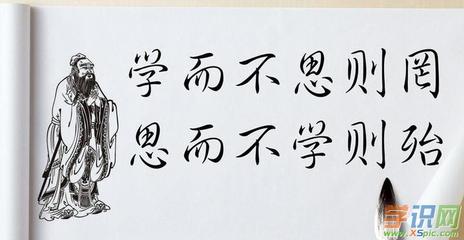 学而不思则罔
思而不学则殆
学识网
www.XSpic.com